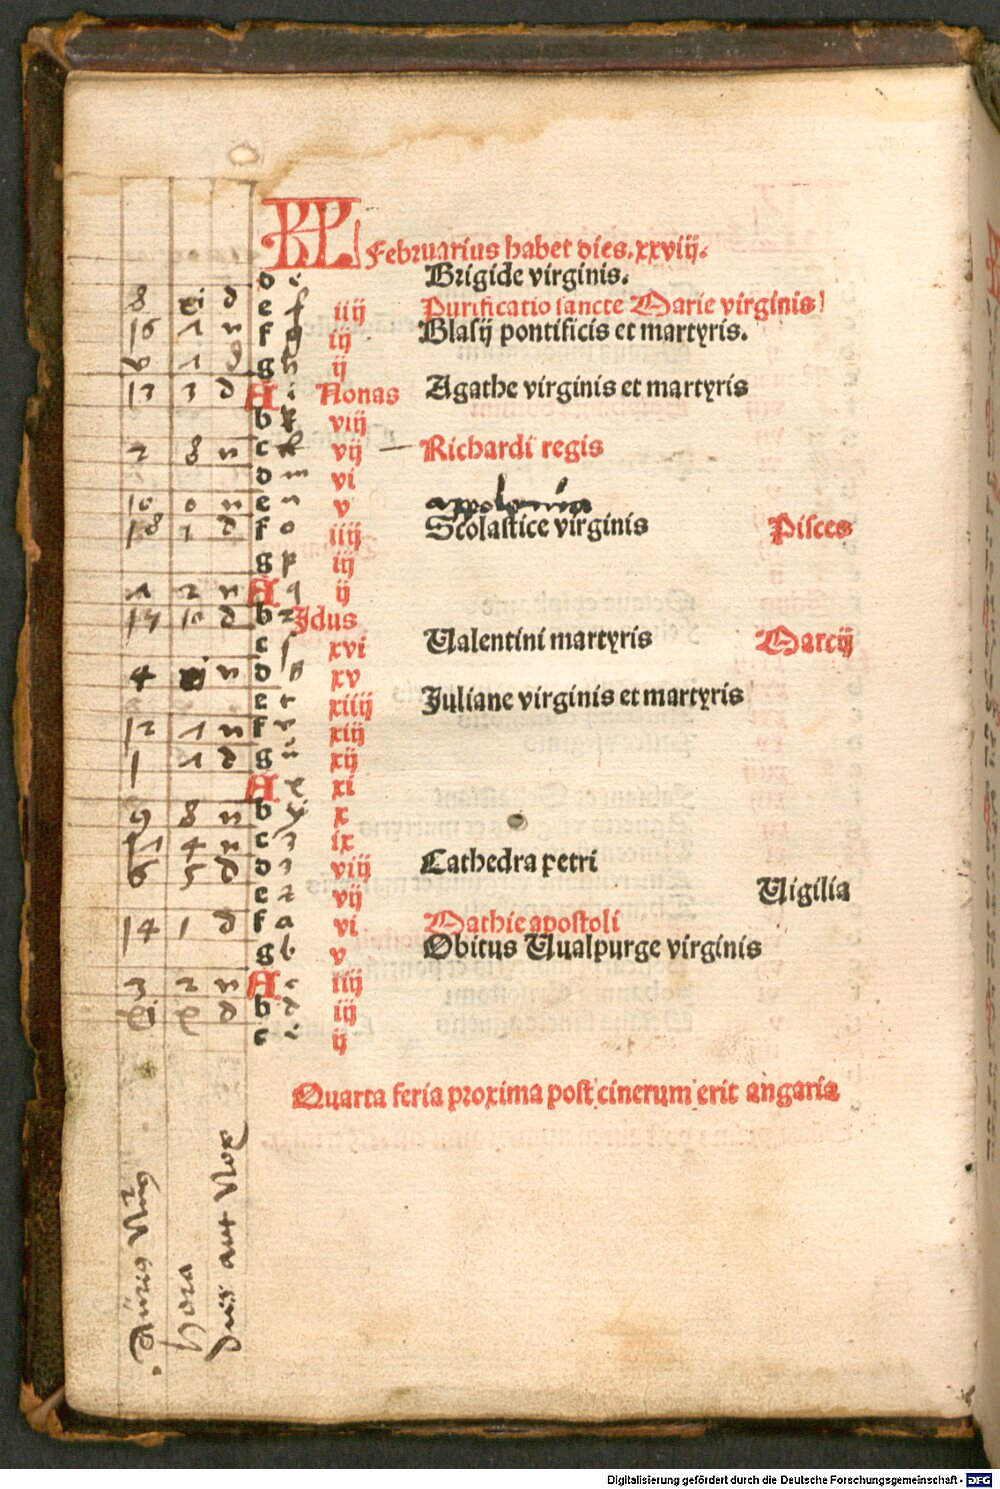 KL Februarius habet dies.xxviij.
d Brigide virginis.
8 xi d e f iiij Purificatio sancte Marie virginis
16 1 n f g iij Blasij pontificis et martyris.
g h ij
13 3 d A i Nonas Agathe virginis et martyris
b k viij
2 8 n c vij Richardi regis
d m vi
10 0 n e n v apolonia
18 1 d f o iiij Scolastice virginis Pisces
g p iij
2 n A q ij
10 d b Idus
c ſ xvi Ualentini martyris Marcij
4 n d xv
e xiiij Juliane virginis et martyris
12 1 n f xiij
1 1 d g xij
A xi
9 8 n b x
4 n c ix
6 5 d d viij Cathedra petri
e vij Uigilia
14 1 d f a vi Mathie apostoli
g b v Obitus Uualpurge virginis
3 2 n A c iiij
xi x d b d iij
c ij
Quarta feria proxima post cinerum erit angaria
Hora
aut Nox
Digitalisierung gefördert durch die Deutsche Forschungsgemeinschaft - DFG